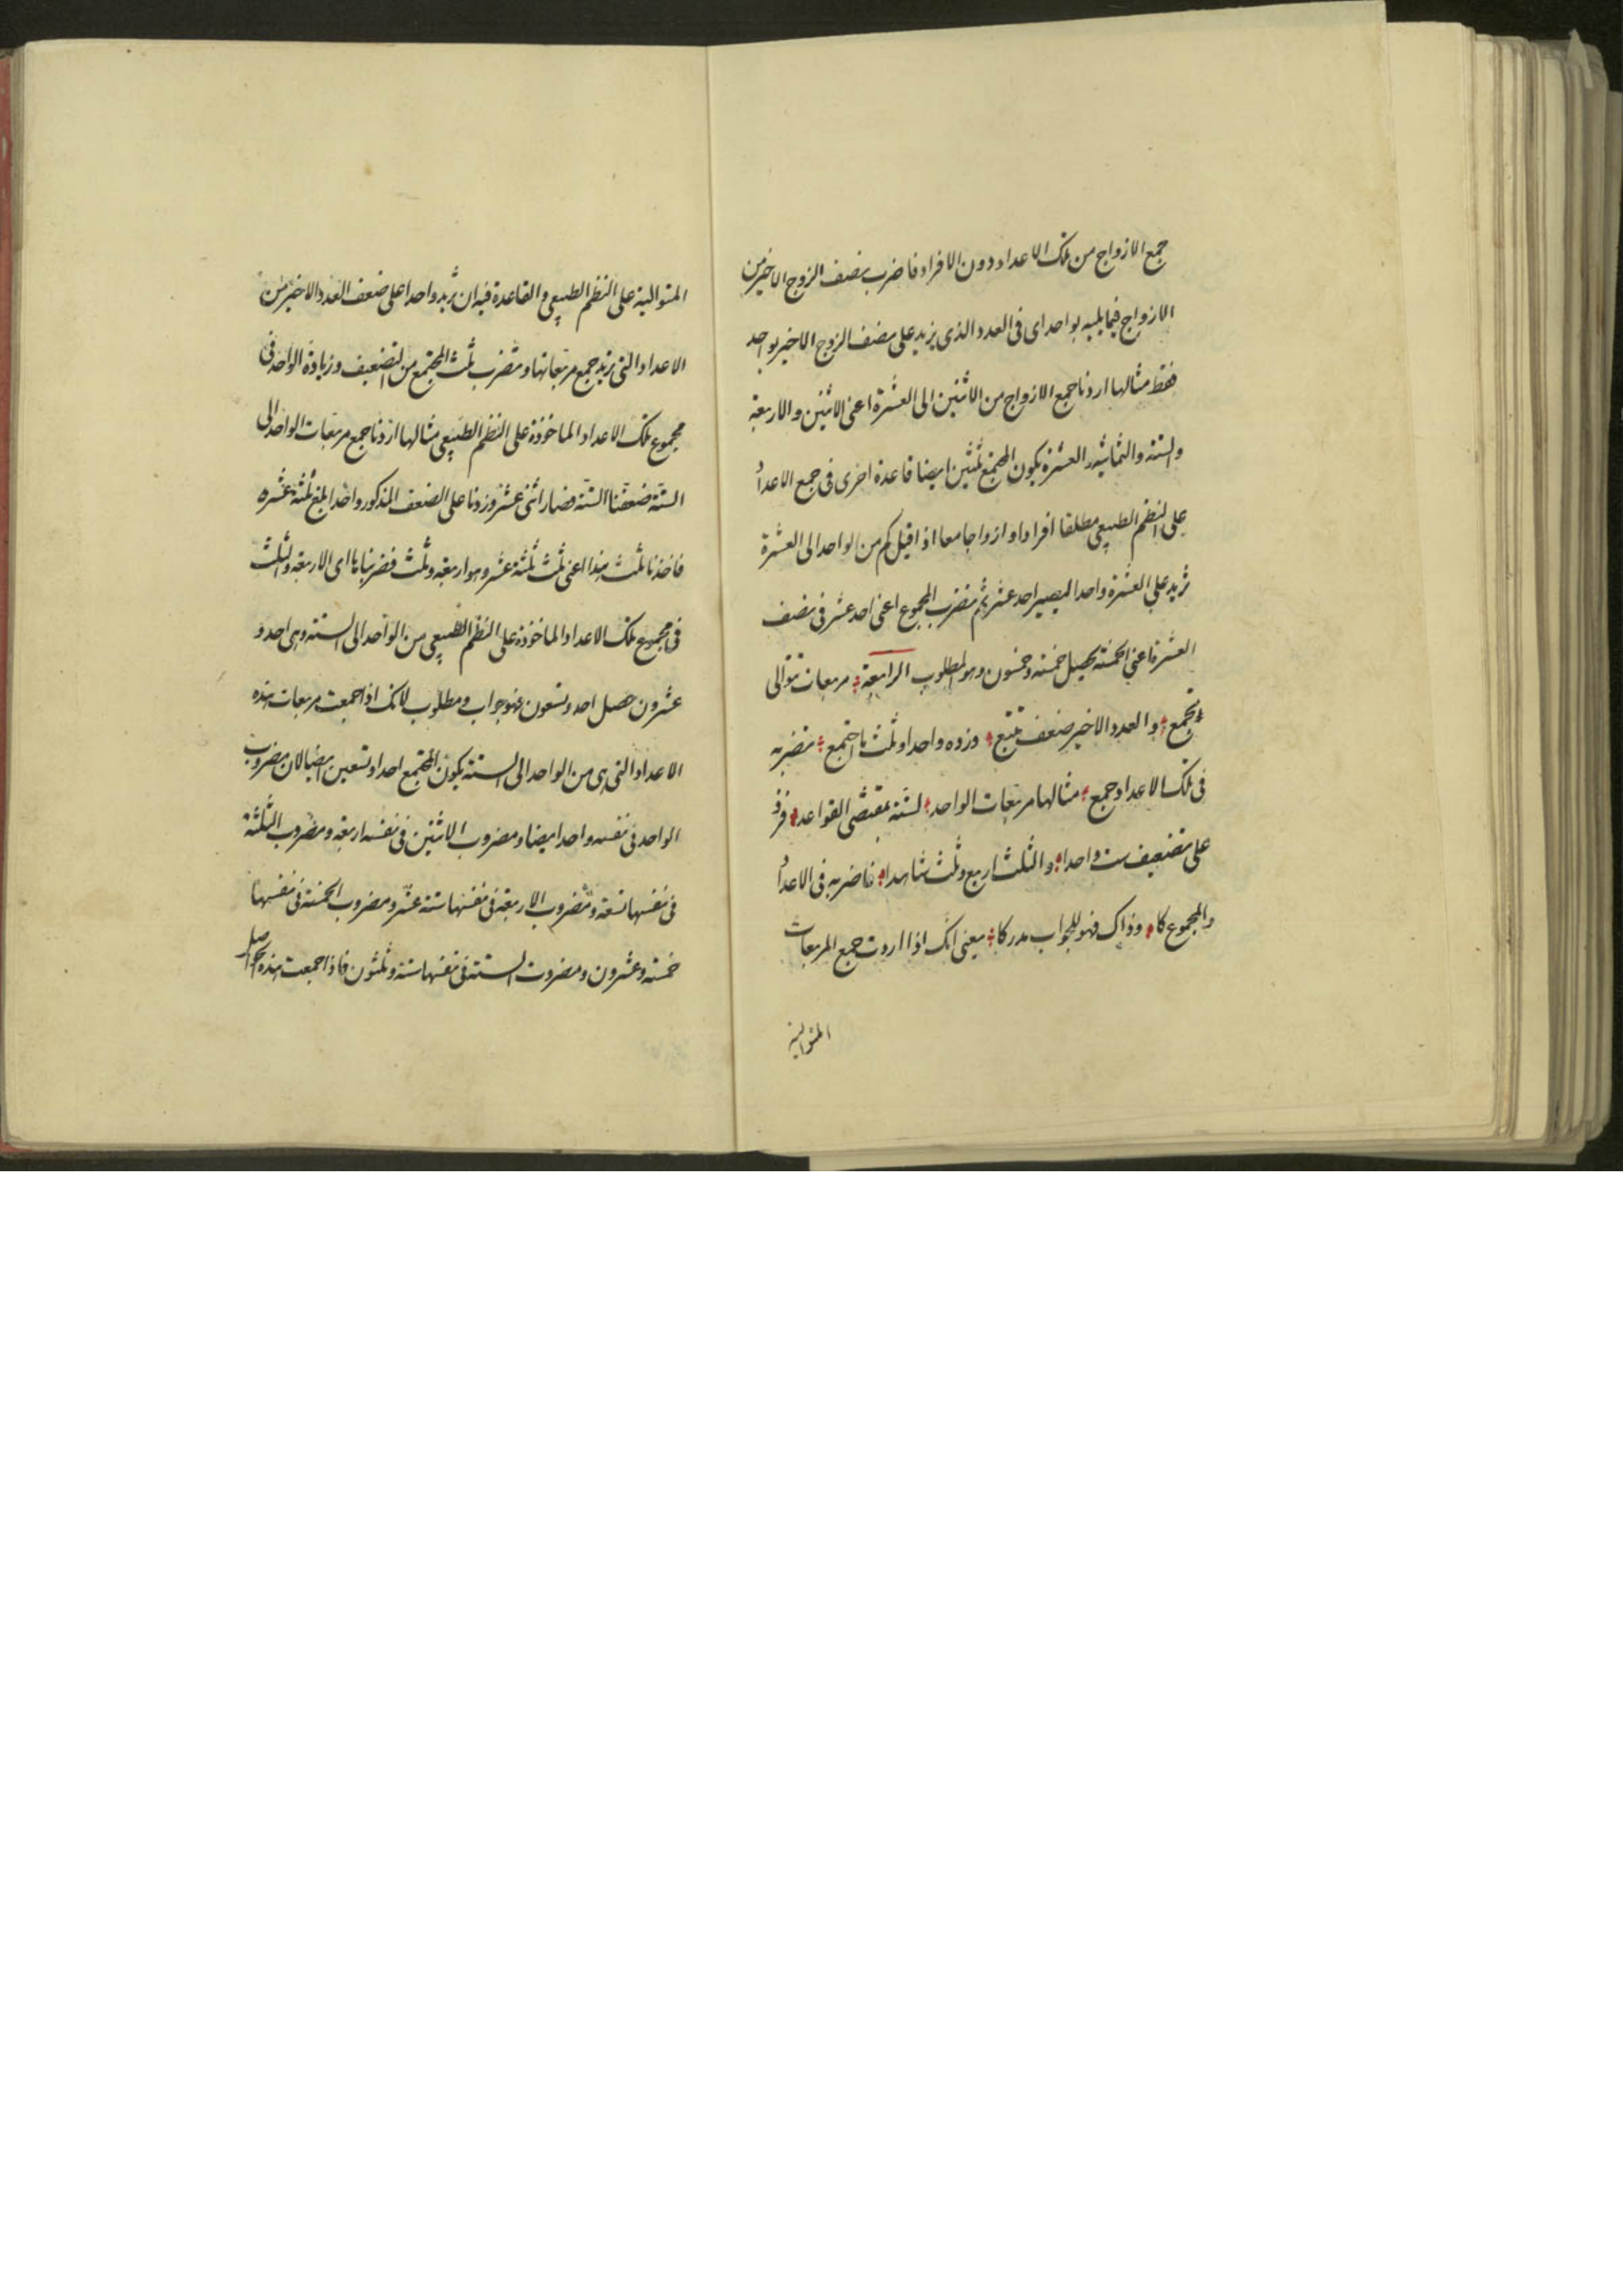 جمع الازواج من تلك الاعداد دون الافراد فاضرب نصف الزوج الاخير من
الازواج فيما يليه بواحد اى فى العدد الذى يزيد على نصف الزوج الاخير بواحد
فقط مثالها اردنا جمع الازواج من الاثنين الى العشرة اعنى الاثنين والاربعة
والستة والثمانية والعشرة يكون المجتمع ثلثين ايضا قاعدة اخرى فى جمع الاعداد
على النظم الطبيعى مطلقا افرادا وازواجا معا اذا قيل كم من الواحد الى العشرة
تزيد على العشرة واحدا ليصير احد عشر ثم تضرب المجموع اعنى احد عشر فى نصف
العشرة اعنى الخمسة يحصل خمسة وخمسون وهو المطلوب الرابعة مربعات توالى
تجمع والعدد الاخير ضعف تتبع وزده واحدا وثلث ما اجتمع تضربه
فى تلك الاعداد جمع مثالها مربعات الواحد لستة بمقتضى القواعد فزد
على تضعيف ست واحدا والثلث اربع وثلث شاهدا فاضربه فى الاعداد
والمجموع كا وذاك فهو للجواب مدركا يعنى انك اذا اردت جمع المربعات
المتوالية
المتوالية على النظم الطبيعى والقاعدة فيه ان تزيد واحدا على ضعف العدد الاخير من
الاعداد التى تريد جمع مربعاتها وتضرب ثلث المجتمع من التضعيف وزيادة الواحد فى
مجموع تلك الاعداد الماخوذة على النظم الطبيعى مثالها اردنا جمع مربعات الواحد الى
الستة ضعفنا الستة فصار اثنى عشر وزدنا على الضعف المذكور واحدا بلغ ثلثة عشرة
فاخذنا ثلث هذا اعنى ثلث ثلثة عشر وهو اربعة وثلث فضربناها اى الاربعة والثلث
فى مجموع تلك الاعداد الماخوذة على النظم الطبيعى من الواحد الى الستة وهى احد و
عشرون حصل احد وتسعون فهو جواب ومطلوب لانك اذا جمعت مربعات هذه
الاعداد التى هى من الواحد الى الستة يكون المجتمع احدا وتسعين ايضا لان مضروب
الواحد فى نفسه واحد ايضا ومضروب الاثنين فى نفسه اربعة ومضروب الثلثة
فى نفسها تسعة ومضروب الاربعة فى نفسها ستة عشر ومضروب الخمسة فى نفسها
خمسة وعشرون ومضروب الستة فى نفسها ستة وثلثون فاذا جمعت هذه